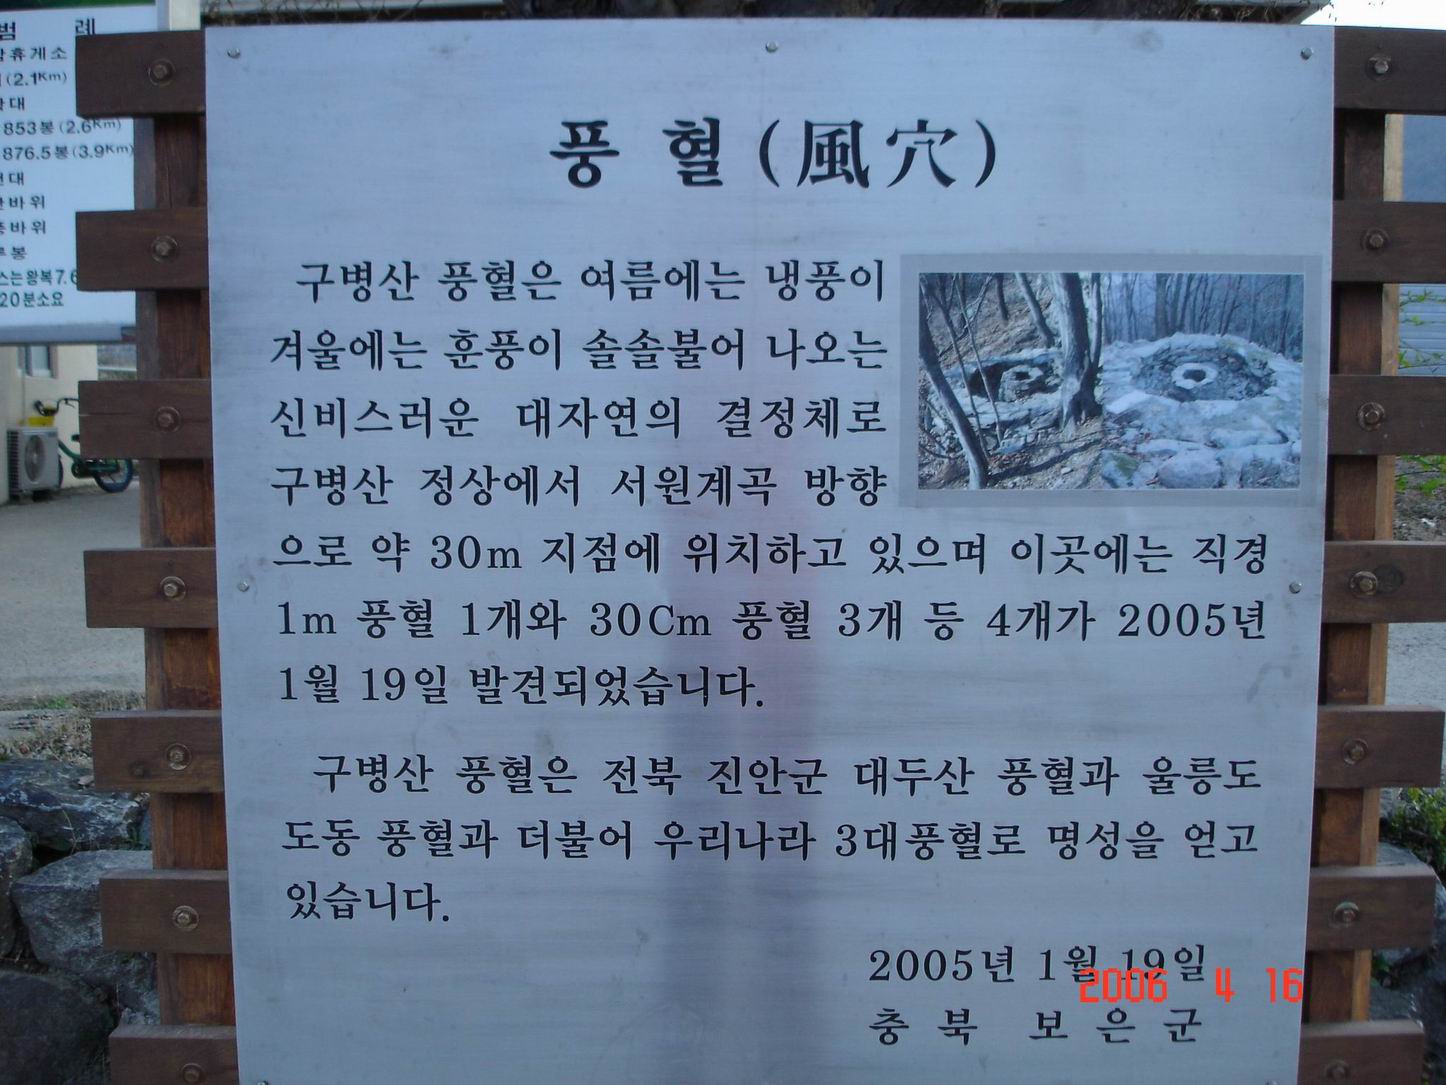 범 례
휴게소
(2.1Km)
대
853봉(2.6Km)
876.5봉(3.9Km)
대
바위
바위
봉
스는왕복7.6
20분소요
풍 혈(風穴)
구병산 풍혈은 여름에는 냉풍이
겨울에는 훈풍이 솔솔불어 나오는
신비스러운 대자연의 결정체로
구병산 정상에서 서원계곡 방향
으로 약 30m 지점에 위치하고 있으며 이곳에는 직경
1m 풍혈 1개와 30Cm 풍혈 3개 등 4개가 2005년
1월 19일 발견되었습니다.
구병산 풍혈은 전북 진안군 대두산 풍혈과 울릉도
도동 풍혈과 더불어 우리나라 3대풍혈로 명성을 얻고
있습니다.
2005년 1월 19일
충 북 보 은 군
2006 4 16